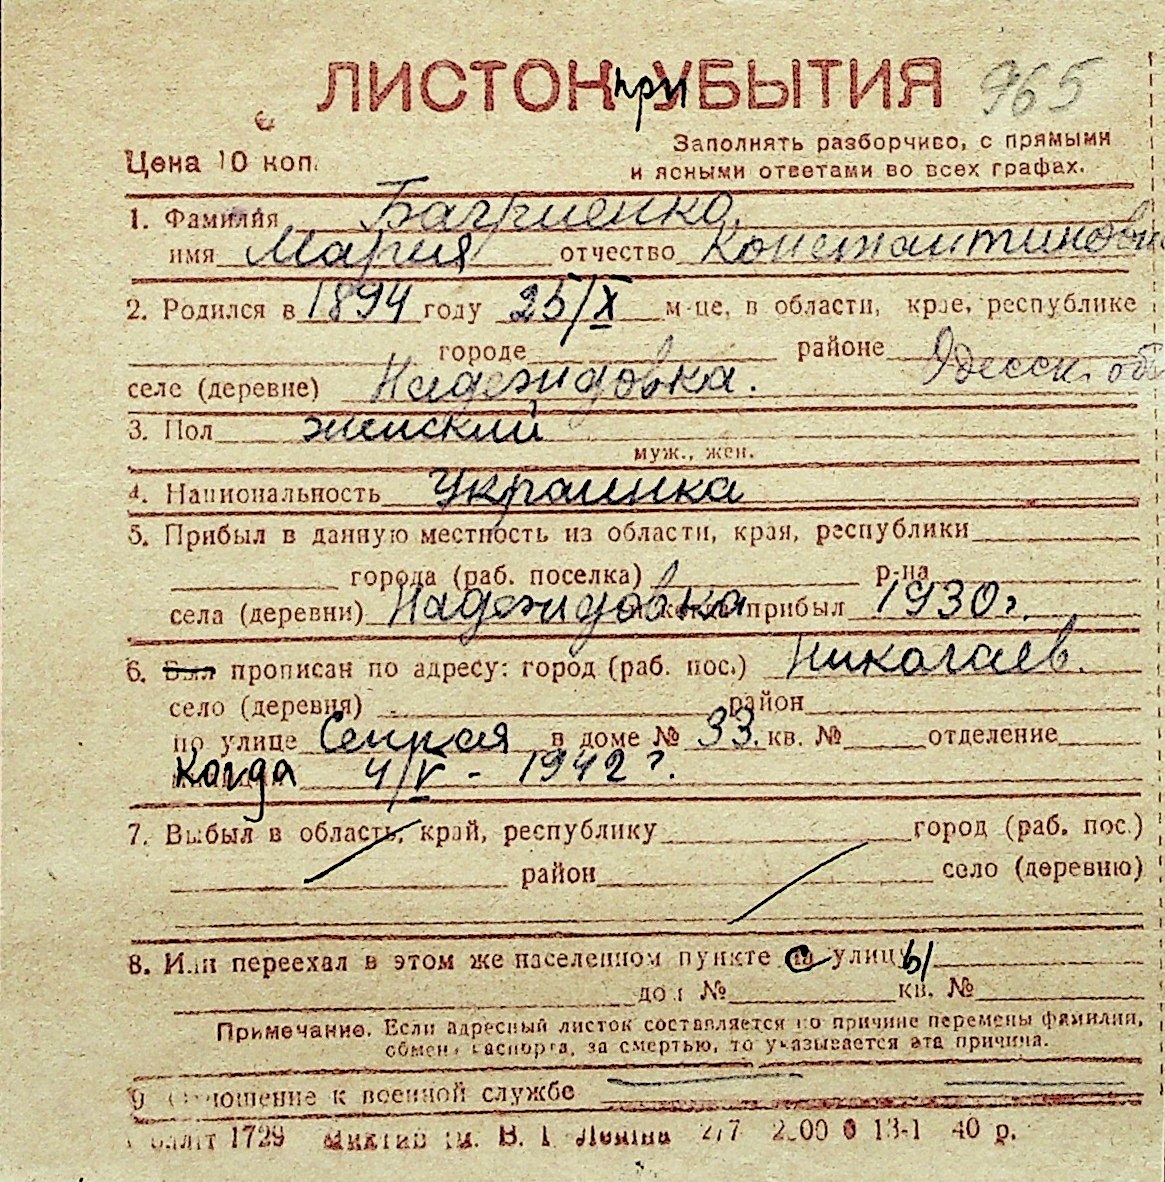 ЛИСТОК при УБЫТИЯ 965
Цена 10 коп.
Заполнять разборчиво, с прямыми
и ясными ответами во всех графах.
1. Фамилия Багриенко
имя Мария отчество Константиновна
2. Родился в 1894 году 25/X м-це, в области, крае, республике
городе районе Одесск. об
селе (деревне) Надеждовка.
3. Пол женский
муж., жен.
4. Национальность Украинка
5. Прибыл в данную местность из области, края, республики
города (раб. поселка) р-на
села (деревни) Надеждовка прибыл 1930 г.
6. Был прописан по адресу: город (раб. пос.) Николаев.
село (деревня) район
по улице Сенная в доме № 33. кв. № отделение
Когда 4/V - 1942 г.
7. Выбыл в область, край, республику город (раб. пос.)
район село (деревню)
8. Или переехал в этом же населенном пункте с улицы
дом № кв. №
Примечание. Если адресный листок составляется по причине перемены фамилии,
обмена паспорта, за смертью, то указывается эта причина.
9 Отношение к военной службе
1729 им. В. І. Леніна 13-1 40 р.